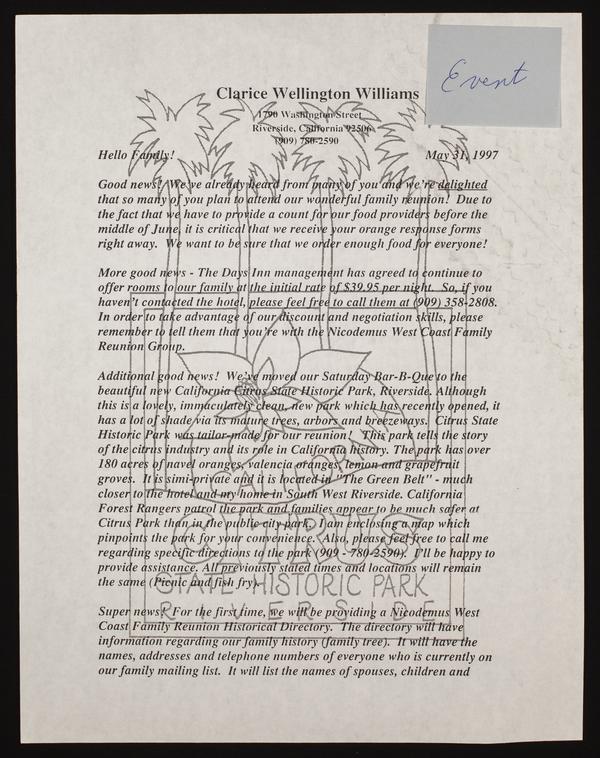 Event
Clarice Wellington Williams
1790 Washington Street
Riverside, California 92506
(909) 780-2590
Hello Family! May 31, 1997
Good news! We've already heard from many of you and we're delighted
that so many of you plan to attend our wonderful family reunion! Due to
the fact that we have to provide a count for our food providers before the
middle of June, it is critical that we receive your orange response forms
right away. We want to be sure that we order enough food for everyone!
More good news - The Days Inn management has agreed to continue to
offer rooms to our family at the initial rate of $39.95 per night. So, if you
haven't contacted the hotel, please feel free to call them at (909) 358-2808.
In order to take advantage of our discount and negotiation skills, please
remember to tell them that you're with the Nicodemus West Coast Family
Reunion Group.
Additional good news! We've moved our Saturday Bar-B-Que to the
beautiful new California Citrus State Historic Park, Riverside. Although
this is a lovely, immaculately clean, new park which has recently opened, it
has a lot of shade via its mature trees, arbors and breezeways. Citrus State
Historic Park was tailor-made for our reunion! This park tells the story
of the citrus industry and its role in California history. The park has over
180 acres of navel oranges, valencia oranges, lemon and grapefruit
groves. It is simi-private and it is located in "The Green Belt" - much
closer to the hotel and my home in South West Riverside. California
Forest Rangers patrol the park and families appear to be much safer at
Citrus Park than in the public city park. I am enclosing a map which
pinpoints the park for your convenience. Also, please feel free to call me
regarding specific directions to the park (909 - 780-2590). I'll be happy to
provide assistance. All previously stated times and locations will remain
the same (Picnic and fish fry).
Super news! For the first time, we will be providing a Nicodemus West
Coast Family Reunion Historical Directory. The directory will have
information regarding our family history (family tree). It will have the
names, addresses and telephone numbers of everyone who is currently on
our family mailing list. It will list the names of spouses, children and
CALIFORNIA
CITRUS
STATE HISTORIC PARK
RIVERSIDE